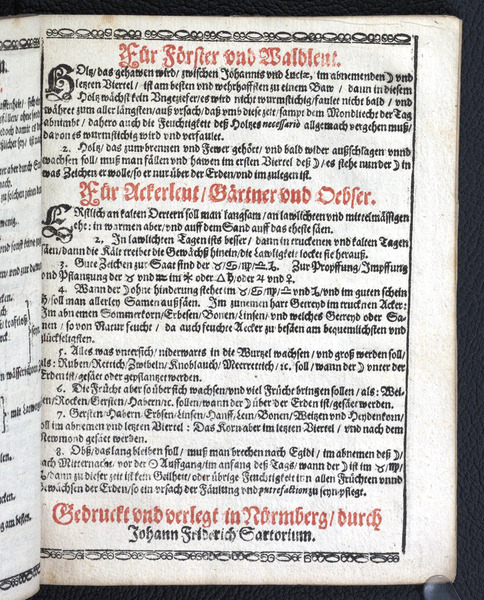 Für Förster vnd Waldleut.
HOltz/das gehawen wird/zwischen Johannis vnd Luciæ/im abnemenden ☽ vnd
letzten Viertel/ist am besten vnd wehrhafften zu einem Baw/dann in diesem
Holtz wächst kein Ungezieferes wird nicht wurmstichig/faulet nicht bald/vnd
währet zum aller längsten/auß vrsach/daß vmb diese zeit/sampt dem Mondliecht der Tag
abnimbt/dahero auch die Feuchtigkeit deß Holtzes necessariò allgemach vergehen muß/
davon es wurmstichig wird vnd verfaulet.
2. Holtz/das zum brennen vnd Fewer gehört/vnd bald wider außschlagen vnnd
wachsen soll/muß man fällen vnd hawen im ersten Viertel deß ☽/es stehe nun der ☽ in
was Zeichen er wolle/so er nur über der Erden/vnd im zulegen ist.
Für Ackerleut/Gärtner vnd Oebser.
ERstlich an kalten Oertern soll man langsam/an lawlichten vnd mittelmässigen
eht: in warmen aber/vnd auff dem Sand auff das eheste säen.
2. In lawlichten Tagen ists besser/dann in truckenen vnd kalten Tagen
säen/dann die Kält treibet die Gewächß hinein/die Lawligkeit locket sie herauß.
3. Gute Zeichen zur Saat sind der ♉/♋/♍/♎/♑. Zur Propffung/Impffung
vnd Pflantzung der ♉ vnd ♒ im ✶ oder △ ♄/oder ♃ vnd ♀.
4. Wann der ☽ ohne hinderung stehet im ♉/♋/♍/♎ vnd ♑/vnd im guten schein
♄/soll man allerley Samen außsäen. Im zunemen harr Getreyd im trucknen Acker:
Im abnemen Sommerkorn/Erbsen/Bonen/Linsen/vnd welches Getreyd oder Sa-
nen/so von Natur feucht/da auch feuchte Aecker zu besäen am bequemlichsten vnd
glückseligsten.
5. Alles was vntersich/niderwarts in die Wurtzel wachsen/vnd groß werden soll/
als: Ruben/Rettich/Zwibeln/Knoblauch/Meerrettich/ꝛc. soll/wann der ☽ vnter der
Erden ist/gesäet oder gepflantzet werden.
6. Die Frücht aber so über sich wachsen/vnd viel Frücht bringen sollen/als: Wei-
en/Rocken/Gersten/Habern/ꝛc. sollen/wann der ☽ über der Erden ist/gesäet werden.
7. Gersten/Habern/Erbsen/Linsen/Hanff/Lein/Bonen/Weitzen vnd Heydenkorn/
soll im abnemen vnd letzten Viertel: Das Korn aber im letzten Viertel/vnd nach dem
Newmond gesäet werden.
8. Obß/das lang bleiben soll/muß man brechen nach Egidi/im abnemen deß ☽/
nach Mitternacht/vor der ☉ Auffgang/im anfang deß Tags/wann der ☽ ist im ♉/♍/
♑/dann zu dieser zeit ist kein Geilheit/oder übrige Feuchtigkeit inn allen Früchten vnnd
Gewächsen der Erden/so ein vrsach der Fäulung vnd putrefaction zu seyn pflegt.
Gedruckt vnd verlegt in Nörmberg/durch
Johann Friderich Sartorium.